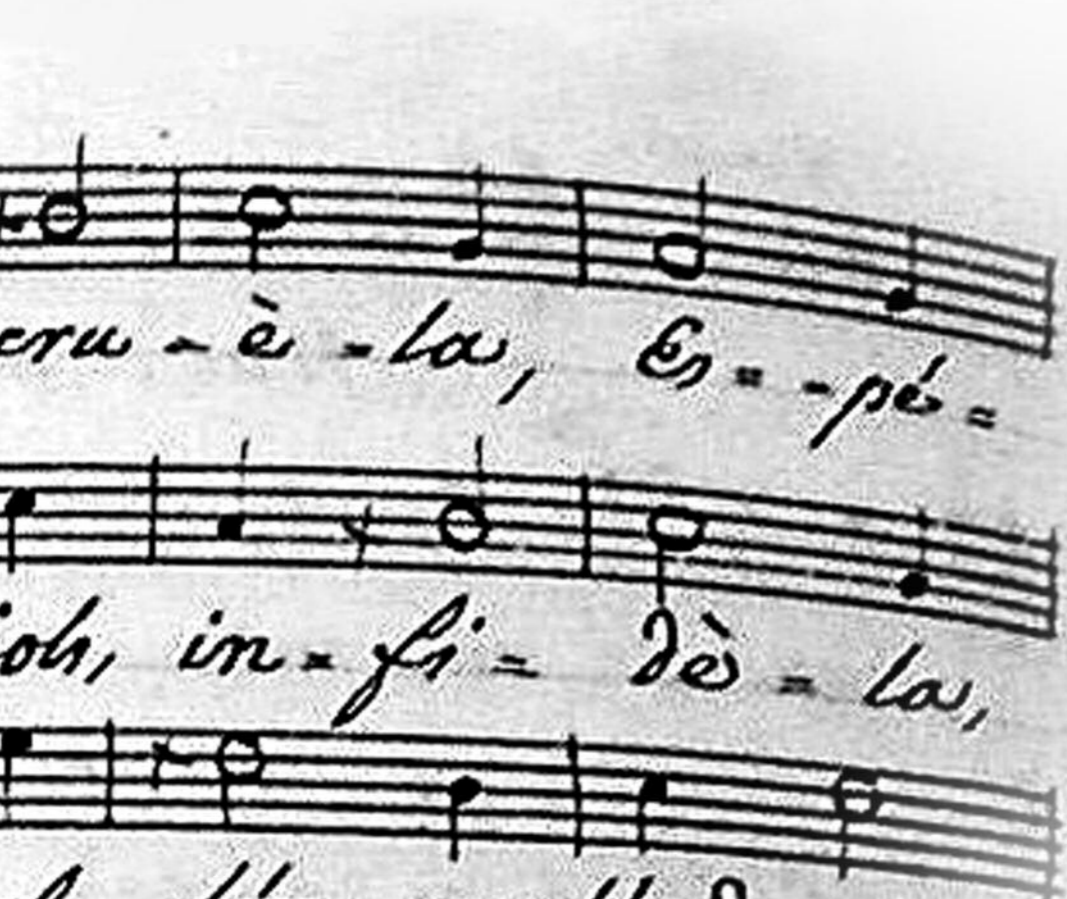 cru - è - la, Es - - pé -
ioh, in - fi - dè - la,